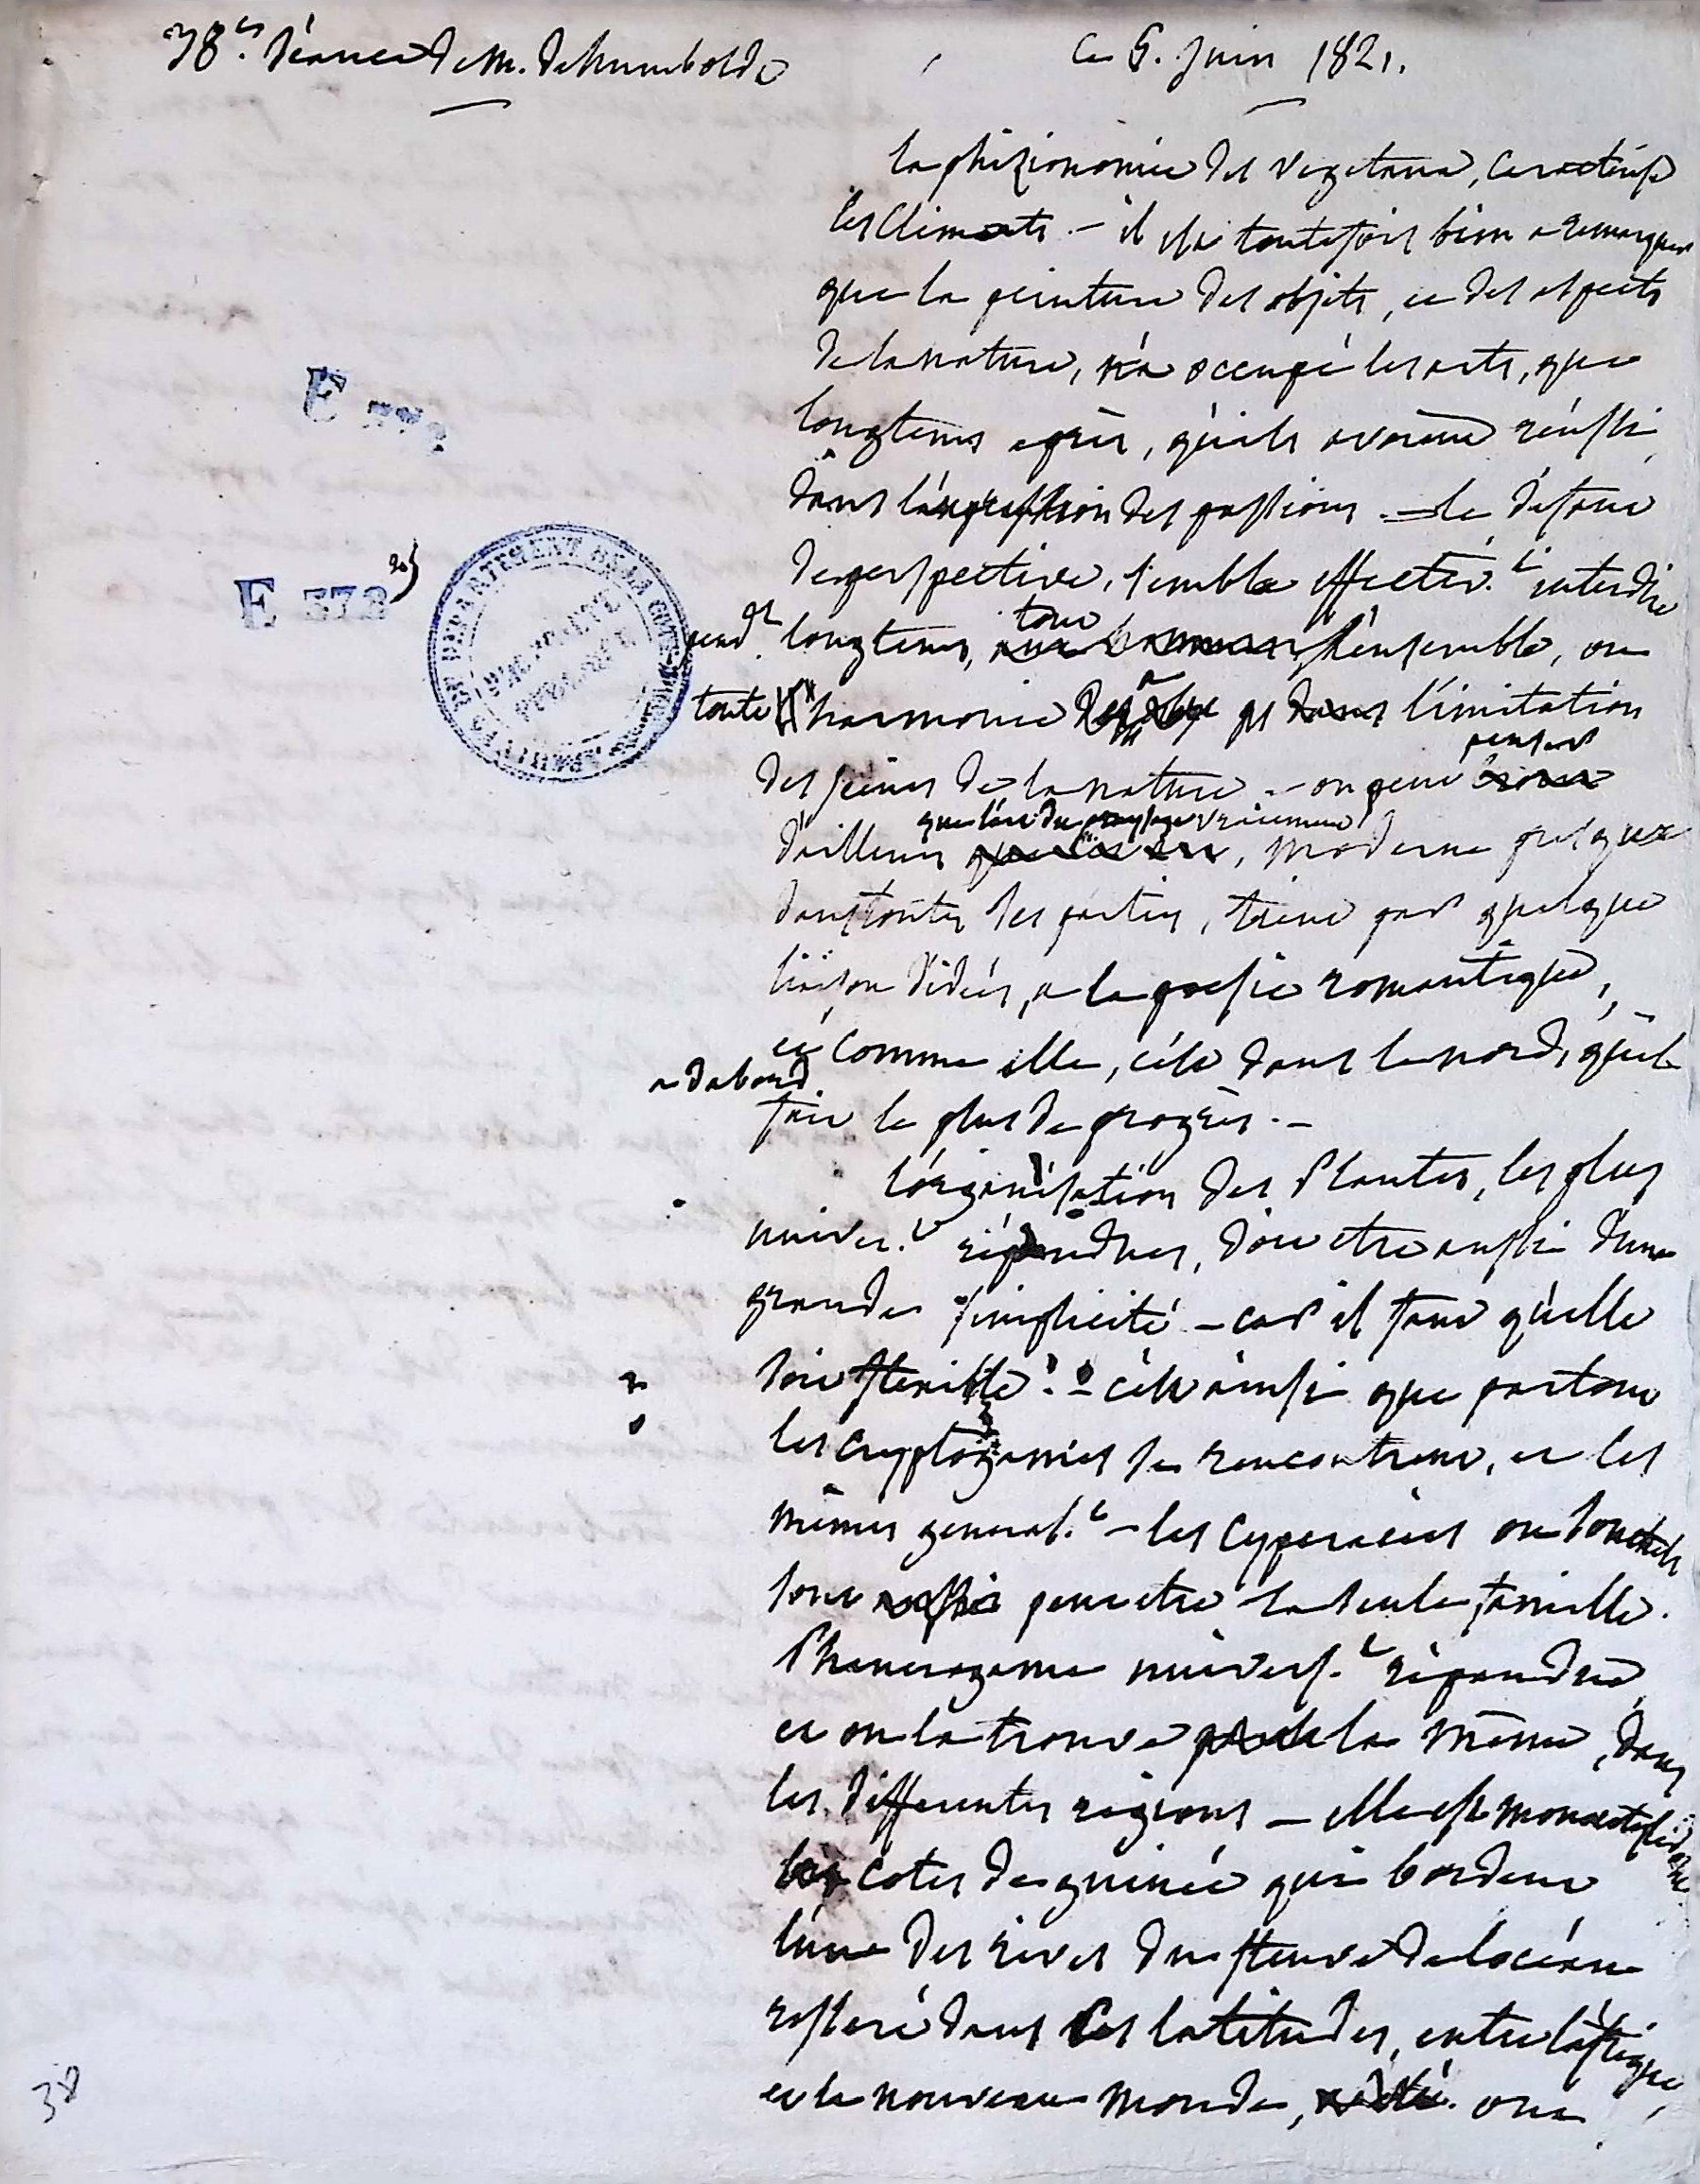 38.e Séance de M. de humboldt
Ce 5. Juin 1821.
la phizionomie des vegetaux, caracterise
les climats. – il est toutefois bien a remarquer
que la peinture des objets, et des aspects
de la nature, n'a occupé les arts, que
longtems après, qu'ils avoient réussi
dans l'expression des passions. – le défaut
de perspective, semble effectiv.t interdire
pend.t longtems, tout l'ensemble, ou
toute harmonie a l'imitation
des scènes de la nature. – on peut penser
d'ailleurs que l'art du paysage vraiment moderne presque
dans toutes ses parties, tient par quelque
liaison d'idées, a la poesie romantique,
et comme elle, c'est dans le nord, qu'il
a d'abord
fait le plus de progrès. –
l'organisation des Plantes, les plus
univer.t répandues, doit etre aussi d'une
grande simplicité – car il faut qu'elle
soit flexible. – c'est ainsi que partout
les cryptogames se rencontrent, et les
mêmes general.t – les cyperacées ou souchets
sont peut etre la seule famille
Phanerogame univers.t répandue
et on la trouve la même, dans
les differentes régions – elle est monocotyledone
les cotes de guinée qui bordent
l'une des rives du fleuve de l'océan
resserré dans ces latitudes, entre l'afrique,
et le nouveau monde, ont
E 372
E 378 20)
ARCHIVES DU DEPARTEMENT DE LA COTE
38